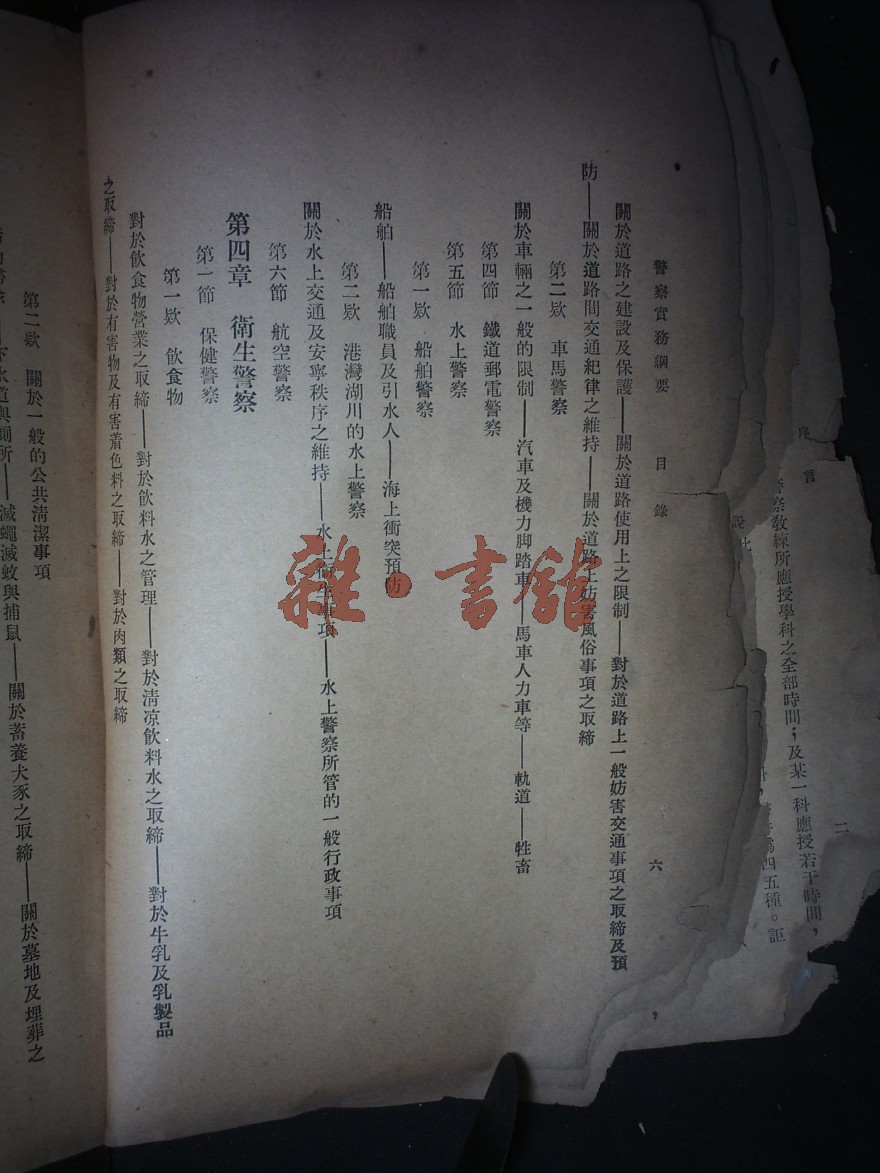 警察實務綱要　目錄　六
關於道路之建設及保護——關於道路使用上之限制——對於道路上一般妨害交通事項之取締及預
防——關於道路間交通紀律之維持——關於道路上妨害風俗事項之取締
第二欵　車馬警察
關於車輛之一般的限制——汽車及機力脚踏車——馬車人力車等——軌道——牲畜
第四節　鐵道郵電警察
第五節　水上警察
第一欵　船舶警察
船舶——船舶職員及引水人——海上衝突預防
第二欵　港灣湖川的水上警察
關於水上交通及安寧秩序之維持——水上衛生事項——水上警察所管的一般行政事項
第六節　航空警察
第四章　衛生警察
第一節　保健警察
第一欵　飲食物
對於飲食物營業之取締——對於飲料水之管理——對於清凉飲料水之取締——對於牛乳及乳製品
之取締——對於有害物及有害着色料之取締——對於肉類之取締
第二欵　關於一般的公共清潔事項
下水道與厠所——滅蠅滅蚊與捕鼠——關於畜養犬豕之取締——關於墓地及埋葬之
序言　二
警察教練所應授學科之全部時間；及某一科應授若干時間，
四五種。詎
雜·書館